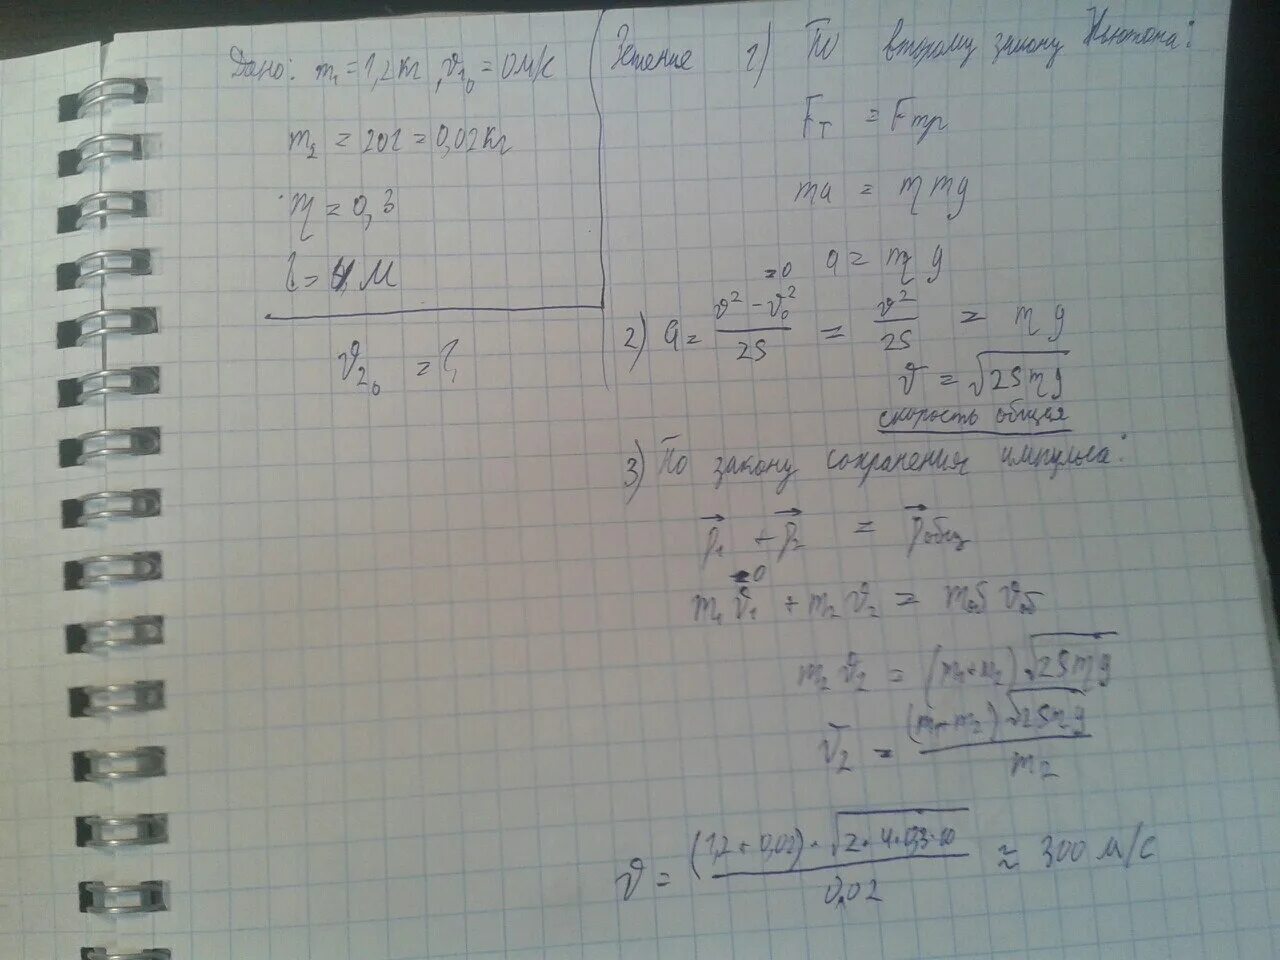 Дано: m₁ = 1,2 кг, v₁₀ = 0 м/с
m₂ = 20 г = 0,02 кг
η = 0,3
l = 4 м
v₂₀ = ?
Решение 1) По второму закону Ньютона:
Fт = Fтр
ma = ηmg
a = ηg
2) a = (v² - v₀²)/2S = v²/2S = ηg
= 0
v = √2Sηg
скорость общая
3) По закону сохранения импульса:
p₁ + p₂ = pобщ
= 0
m₁v₁ + m₂v₂ = mобvоб
m₂v₂ = (m₁+m₂)√2Sηg
v₂ = (m₁+m₂)√2Sηg / m₂
v = (1,2 + 0,02) · √2·4·0,3·10 / 0,02 ≈ 300 м/с